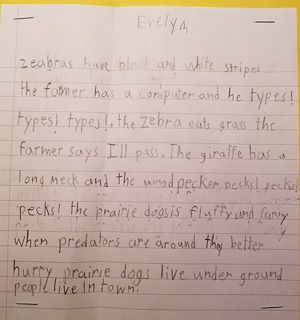 Evelyn
zeabras have black and white stripes
the farmer has a computer and he types!
types! types!, the zebra eats grass the
farmer says I'll pass. The giraffe has a
long neck and the wood pecker pecks! pecks!
pecks! the prairie dogs is fluffy and funny
when predators are around they better
hurry prairie dogs live under ground
people live in town.